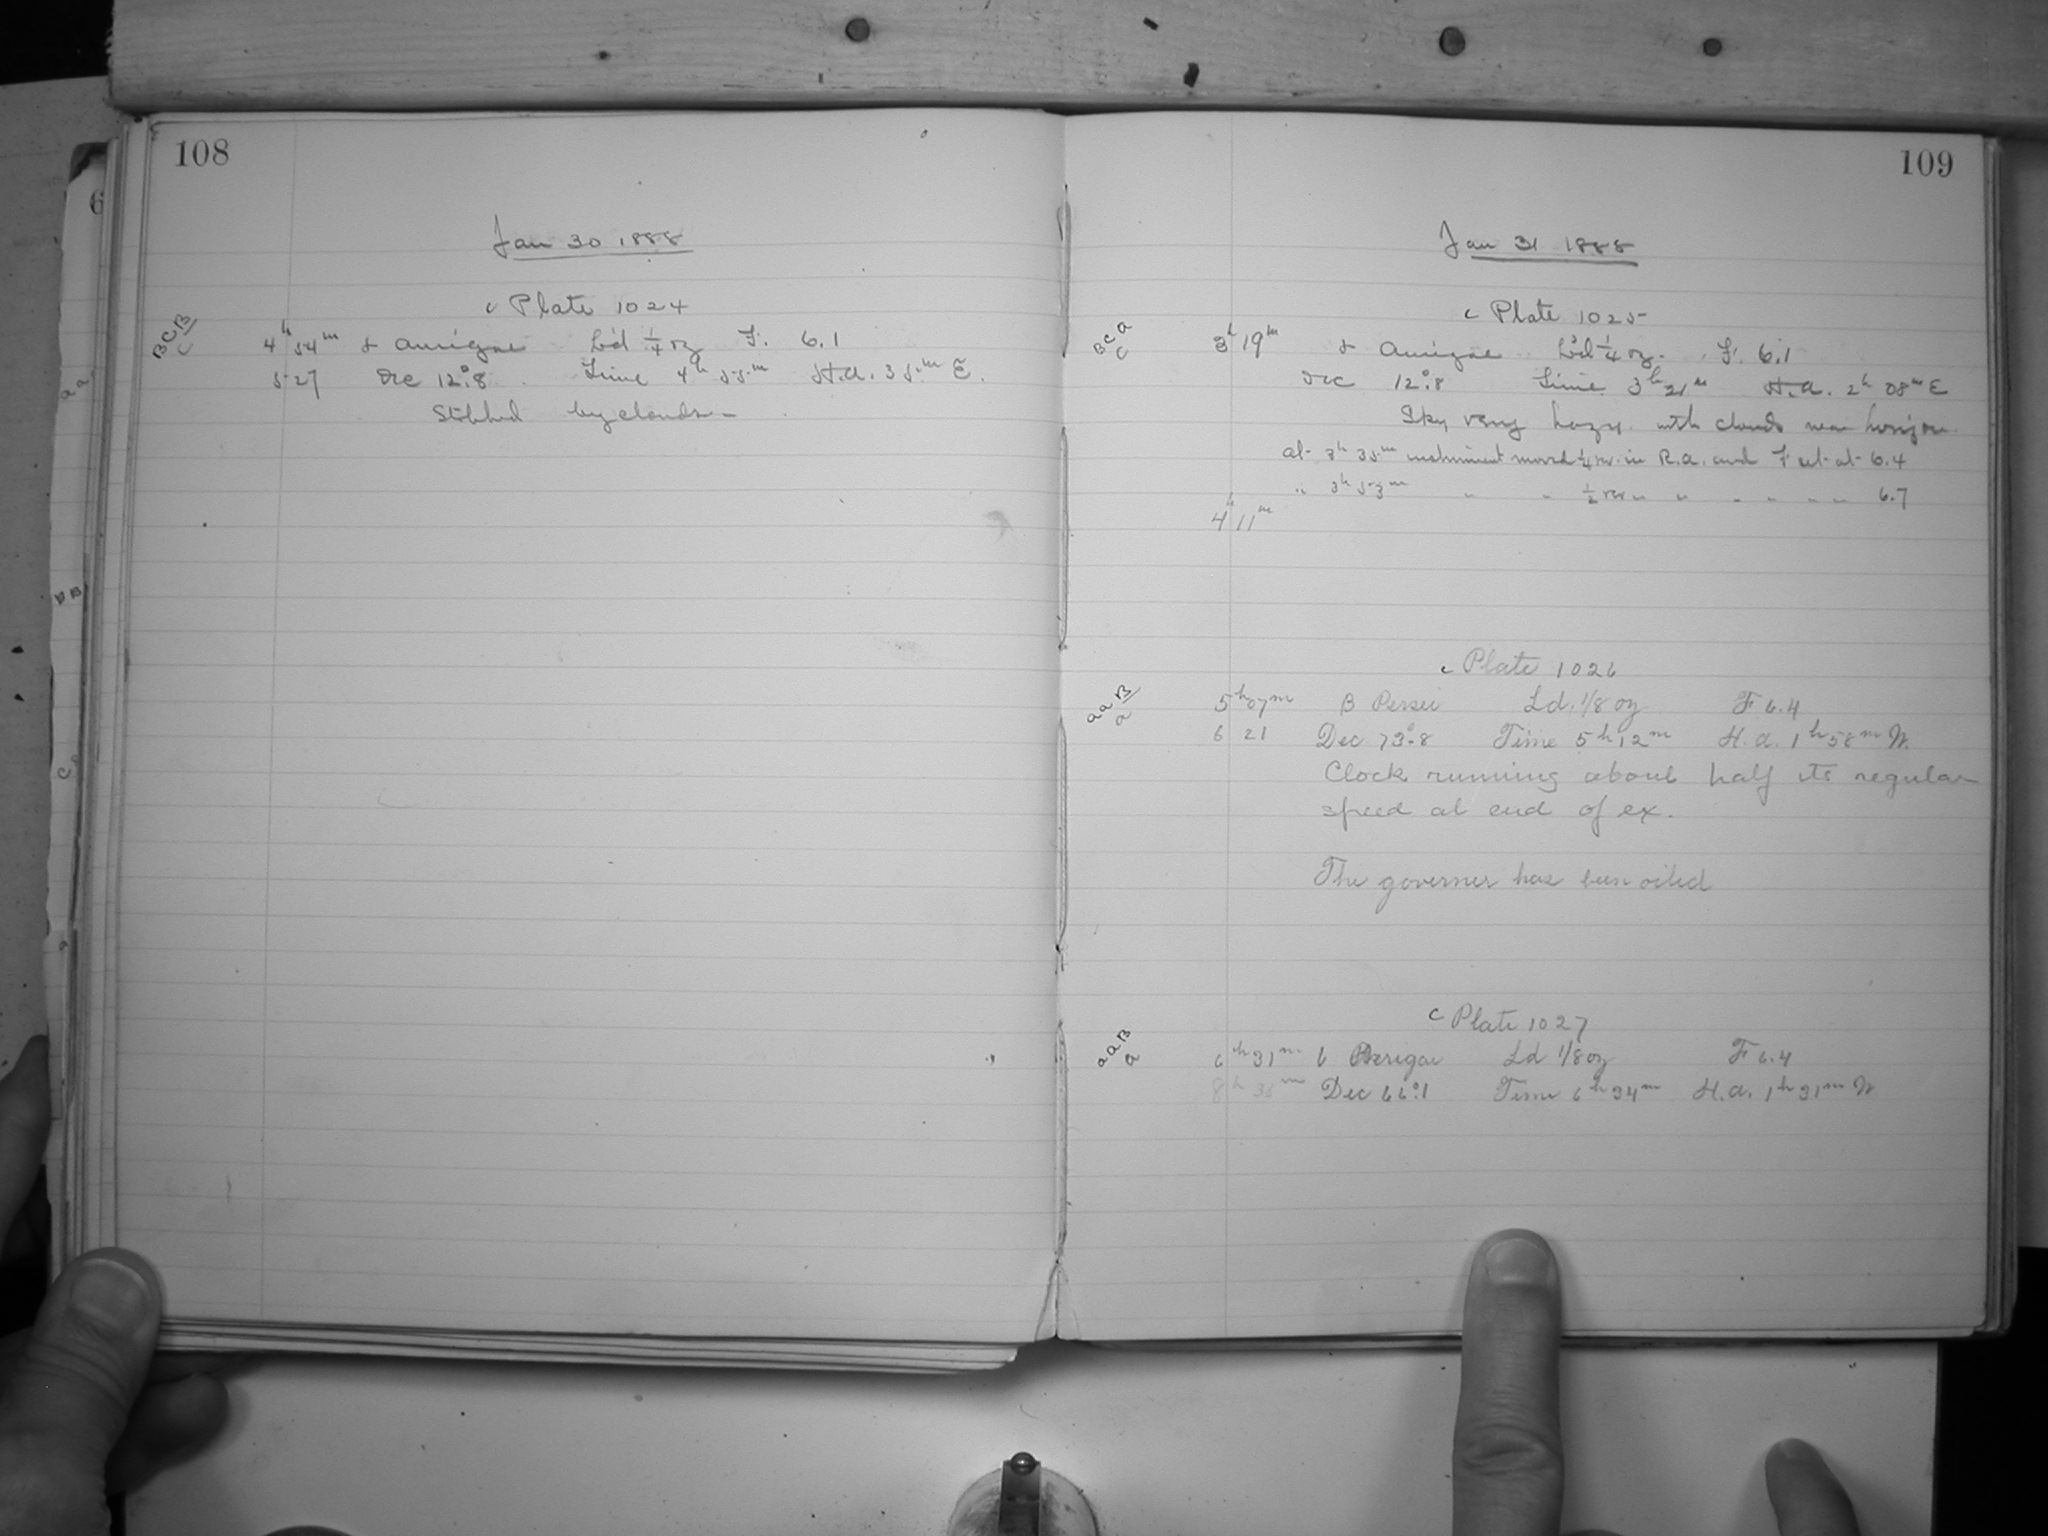 108
Jan 30 1888
c Plate 1024
B C B
C
4h 54m & Aurigae L'd 1/4 oz F. 6.1
5 27 Dec 12°.8 Time 4h 55m H.A. 35m E.
Stopped by clouds -
109
Jan 31 1888
c Plate 1025
B C a
C
3h 19m & Aurigae L'd 1/4 oz. F. 6.1
Dec 12°.8 Time 3h 21m H.A. 2h 08m E
Sky very hazy with clouds near horizon.
at 3h 35m instrument moved 1/4 rev. in R.A. and F set at 6.4
" 3h 53m " " 1/2 rev " " " " " " 6.7
4h 11m
c Plate 1026
a a B
a
5h 07m B Persei Ld. 1/8 oz F 6.4
6 21 Dec 73°.8 Time 5h 12m H.A. 1h 58m W.
Clock running about half its regular
speed at end of ex.
The governer has been oiled
c Plate 1027
a a B
a
6h 31m Ld 1/8 oz F 6.4
8h Dec 66°.1 Time 6h 34m H.A. 1h 31m W
6
a a
B B
C